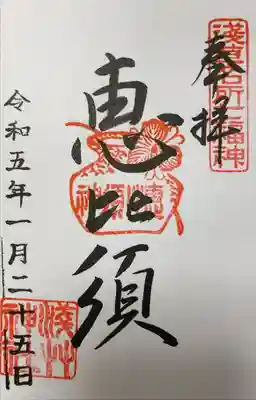 奉拝
浅草名所七福神
恵比須
令和五年一月二十五日
浅草神社